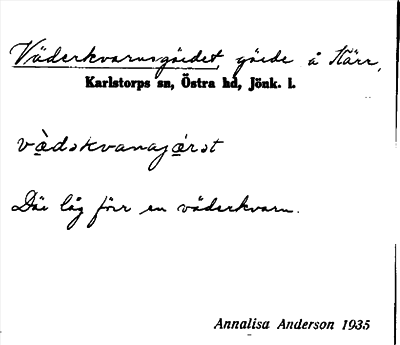 Väderkvarnsgärdet, gärde å Kärr,
Karlstorps sn, Östra hd, Jönk. l.
vàdəkvanajǽrət
Där låg förr en väderkvarn.
Annalisa Anderson 1935